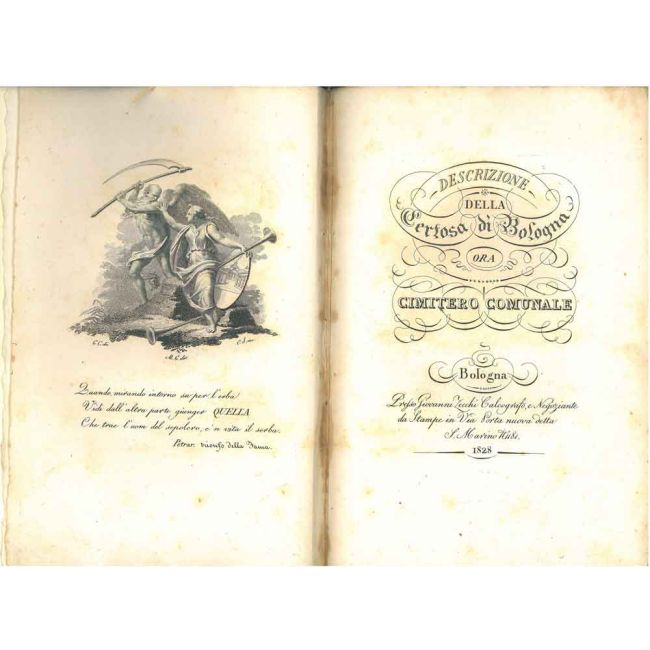 Quando, mirando intorno su per l'erba
Vidi dall'altra parte giunger QUELLA
Che trae l'uom del sepolcro, e'n vita il serba.
Petrar. trionfo della Fama.
DESCRIZIONE
DELLA
Certosa di Bologna
ORA
CIMITERO COMUNALE
Bologna
Presso Giovanni Zecchi Calcografo, e Negoziante
da Stampe in Via Porta nuova detta
S. Marino N. 481.
1828